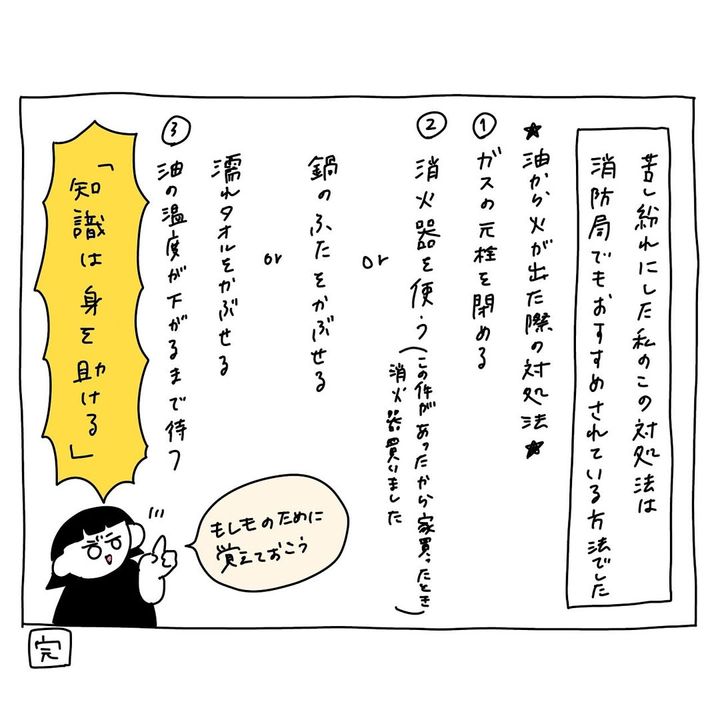 苦し紛れにした私のこの対処法は
消防局でもおすすめされている方法でした
★油から火が出た際の対処法★
①ガスの元栓を閉める
②消火器を使う(この件があったから家買ったとき
消火器買いました)
or
鍋のふたをかぶせる
or
濡れタオルをかぶせる
③油の温度が下がるまで待つ
「知識は身を助ける」
もしものために
覚えておこう
完